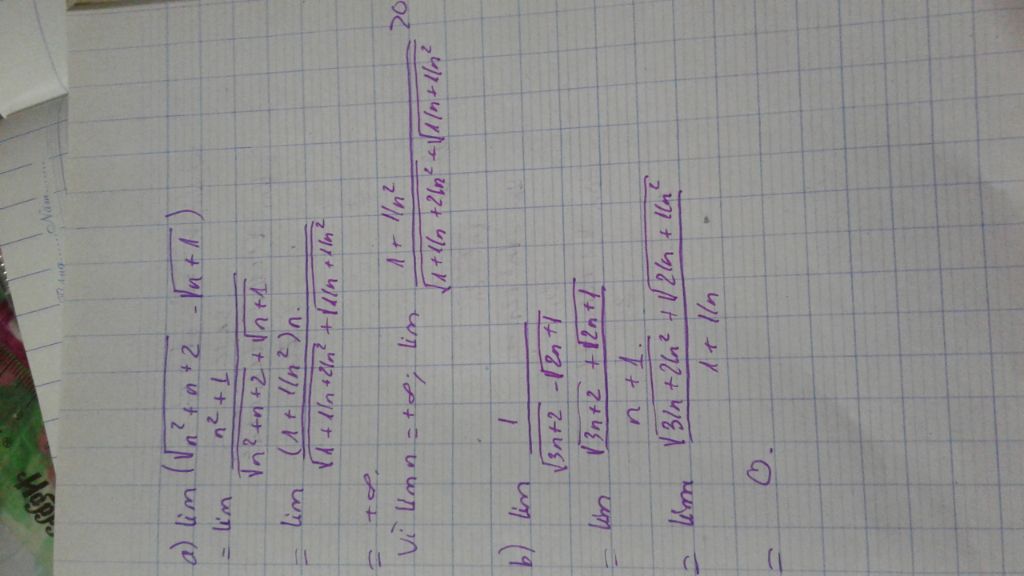 a) lim (√(n² + n + 2) - √(n + 1))
= lim (n² + 1)/(√(n² + n + 2) + √(n + 1))
= lim ((1 + 1/n²) n.)/(√(1 + 1/n + 2/n²) + √(1/n + 1/n²))
= +∞.
Vì lim n = +∞; lim (1 + 1/n²)/(√(1 + 1/n + 2/n²) + √(1/n + 1/n²)) > 0
b) lim 1/(√(3n + 2) - √(2n + 1))
= lim (√(3n + 2) + √(2n + 1))/(n + 1.)
= lim (√(3/n + 2/n²) + √(2/n + 1/n²))/(1 + 1/n)
= 0.